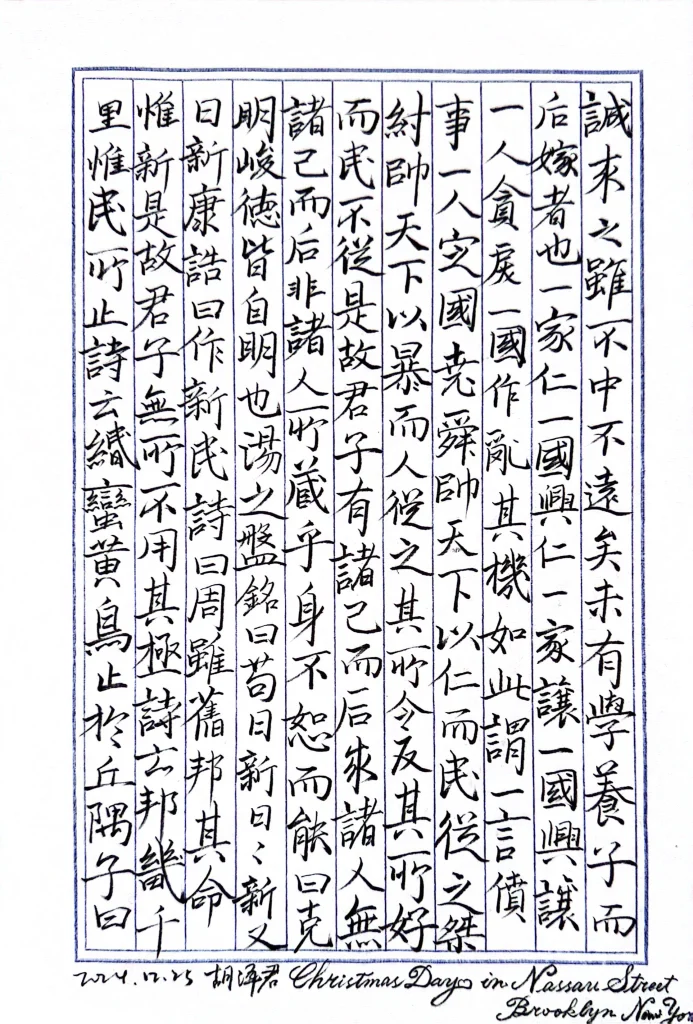 誠求之雖不中不遠矣未有學養子而
后嫁者也一家仁一國興仁一家讓一國興讓
一人貪戾一國作亂其機如此謂一言僨
事一人定國堯舜帥天下以仁而民從之桀
紂帥天下以暴而人從之其所令反其所好
而民不從是故君子有諸己而后求諸人無
諸己而后非諸人所藏乎身不恕而能曰克
明峻德皆自明也湯之盤銘曰苟日新日〻新又
日新康誥曰作新民詩曰周雖舊邦其命
惟新是故君子無所不用其極詩云邦畿千
里惟民所止詩云緡蠻黃鳥止於丘隅子曰
2024.12.25 胡泽君 Christmas Day in Nassau Street
Brooklyn New Yor